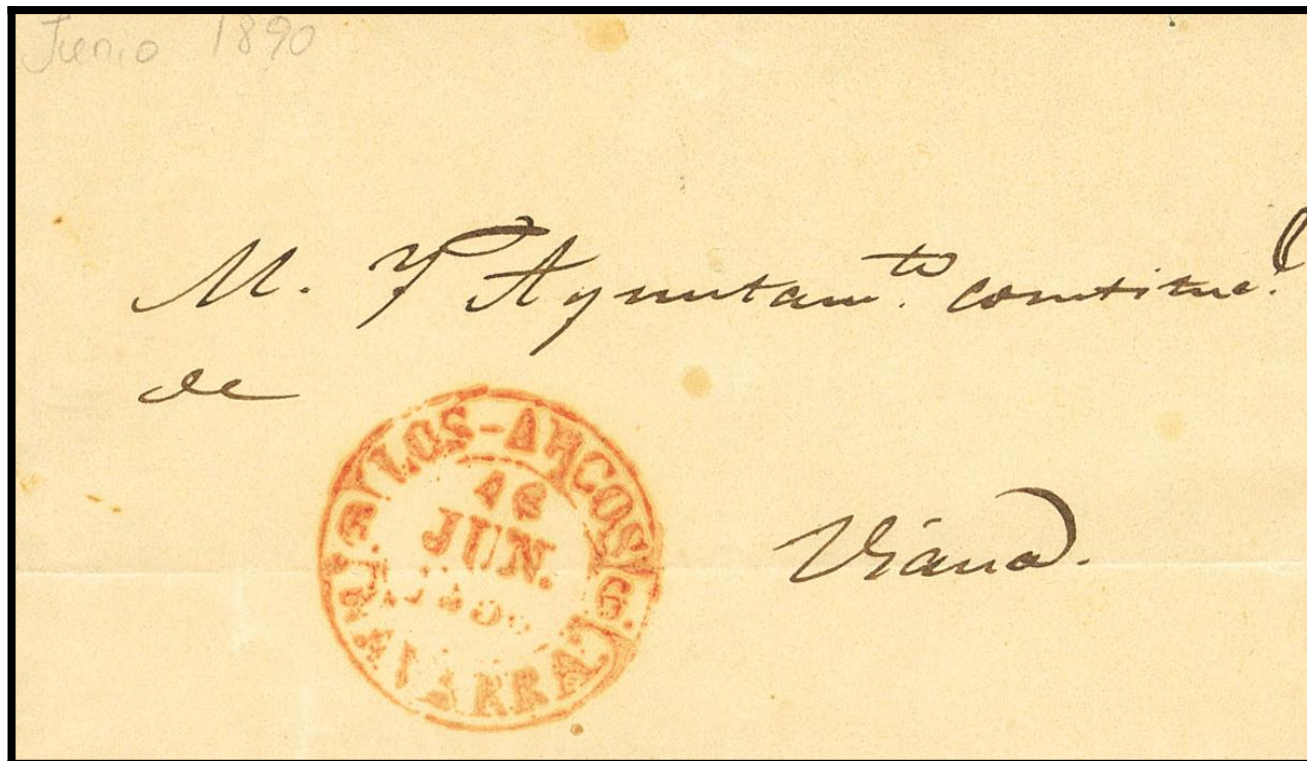 Junio 1890
M. Y Ayuntam.to constituc.l
de
LOS-ARCOS
16
JUN.
NAVARRA
Viana.